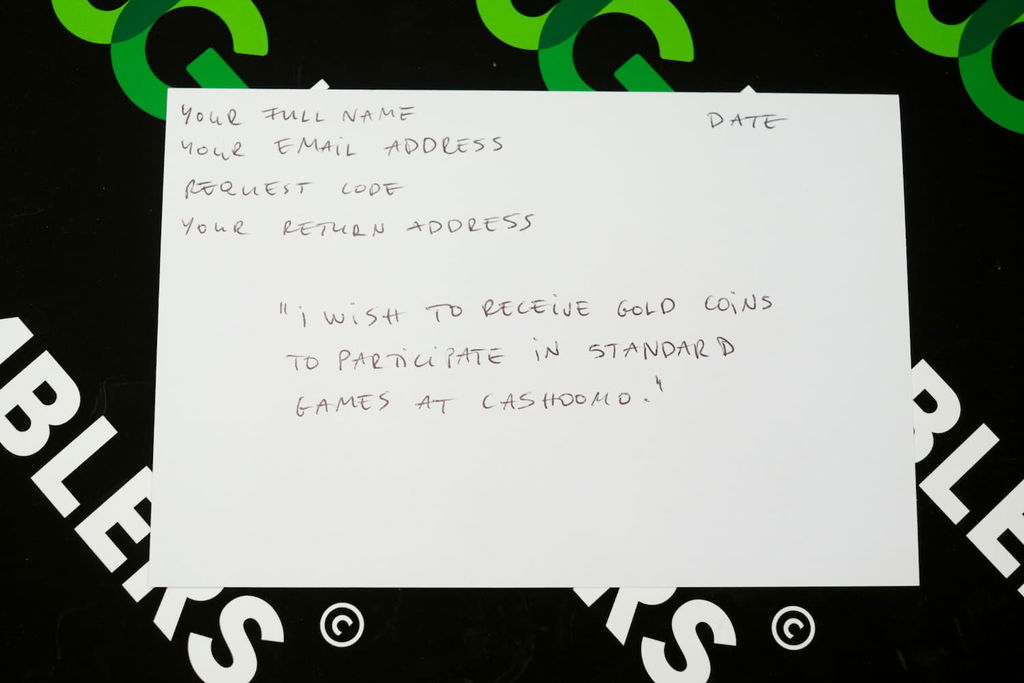 YOUR FULL NAME
DATE
YOUR EMAIL ADDRESS
REQUEST CODE
YOUR RETURN ADDRESS
"I WISH TO RECEIVE GOLD COINS
TO PARTICIPATE IN STANDARD
GAMES AT CASHOOMO."
ABLERS
©
BLE
RS
©